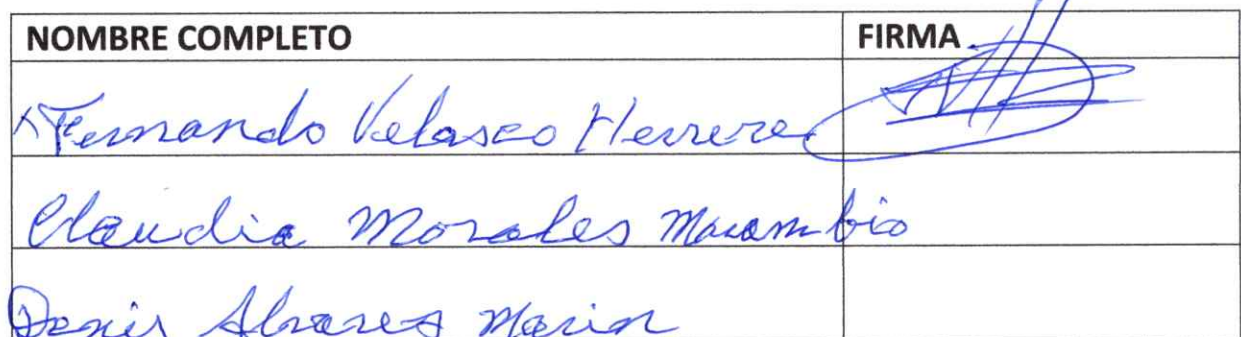 NOMBRE COMPLETO FIRMA
Fernando Velasco Herrera
Claudia Morales Marambio
Denis Alvarez Marin